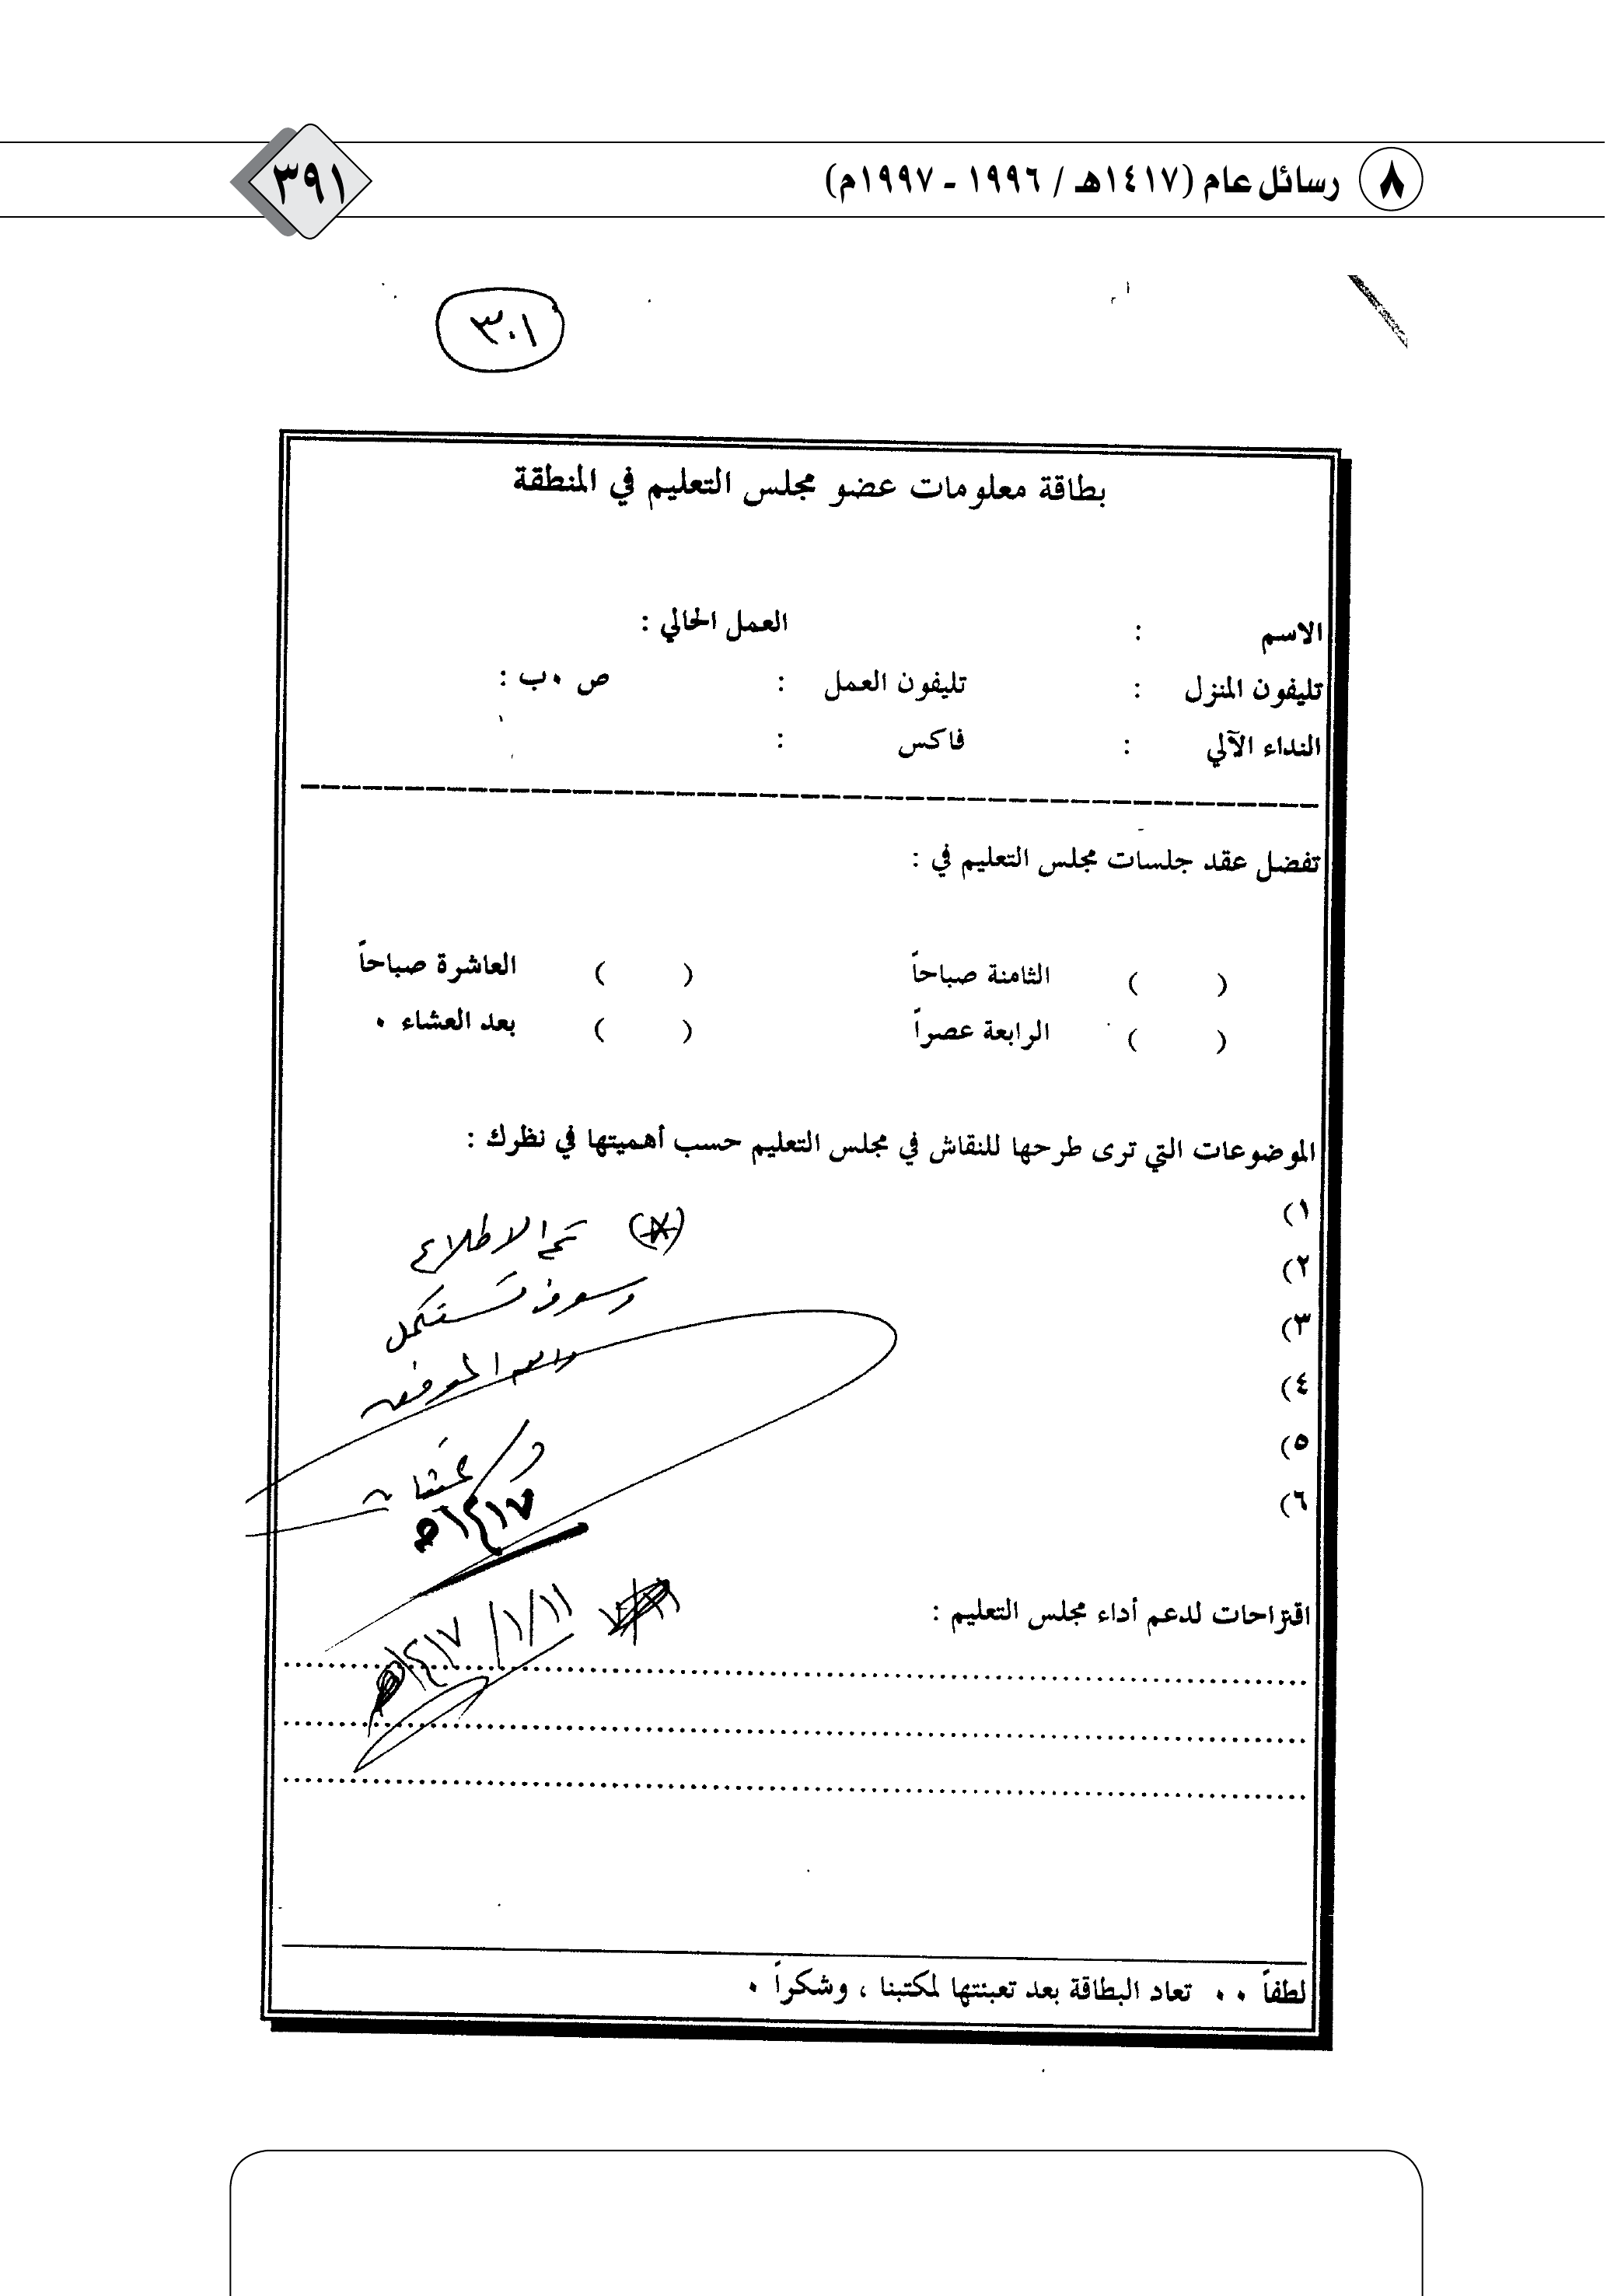 ٨ رسائل عام (١٤١٧هـ / ١٩٩٦ - ١٩٩٧م) ٣٩١
٣٠١
بطاقة معلومات عضو مجلس التعليم في المنطقة
الاسم : العمل الحالي :
تليفون المنزل : تليفون العمل : ص ٠ب :
النداء الآلي : فاكس :
تفضل عقد جلسات مجلس التعليم في :
( ) الثامنة صباحاً ( ) العاشرة صباحاً
( ) الرابعة عصراً ( ) بعد العشاء ٠
الموضوعات التي ترى طرحها للنقاش في مجلس التعليم حسب أهميتها في نظرك :
١)
٢)
٣)
٤)
٥)
٦)
(*) تم الاطلاع
وسوف تستكمل
والله الموفق
١٤١٧هـ
اقتراحات لدعم أداء مجلس التعليم :
١١/١/١٤١٧هـ
لطفاً ٠٠ تعاد البطاقة بعد تعبئتها لمكتبنا ، وشكراً ٠